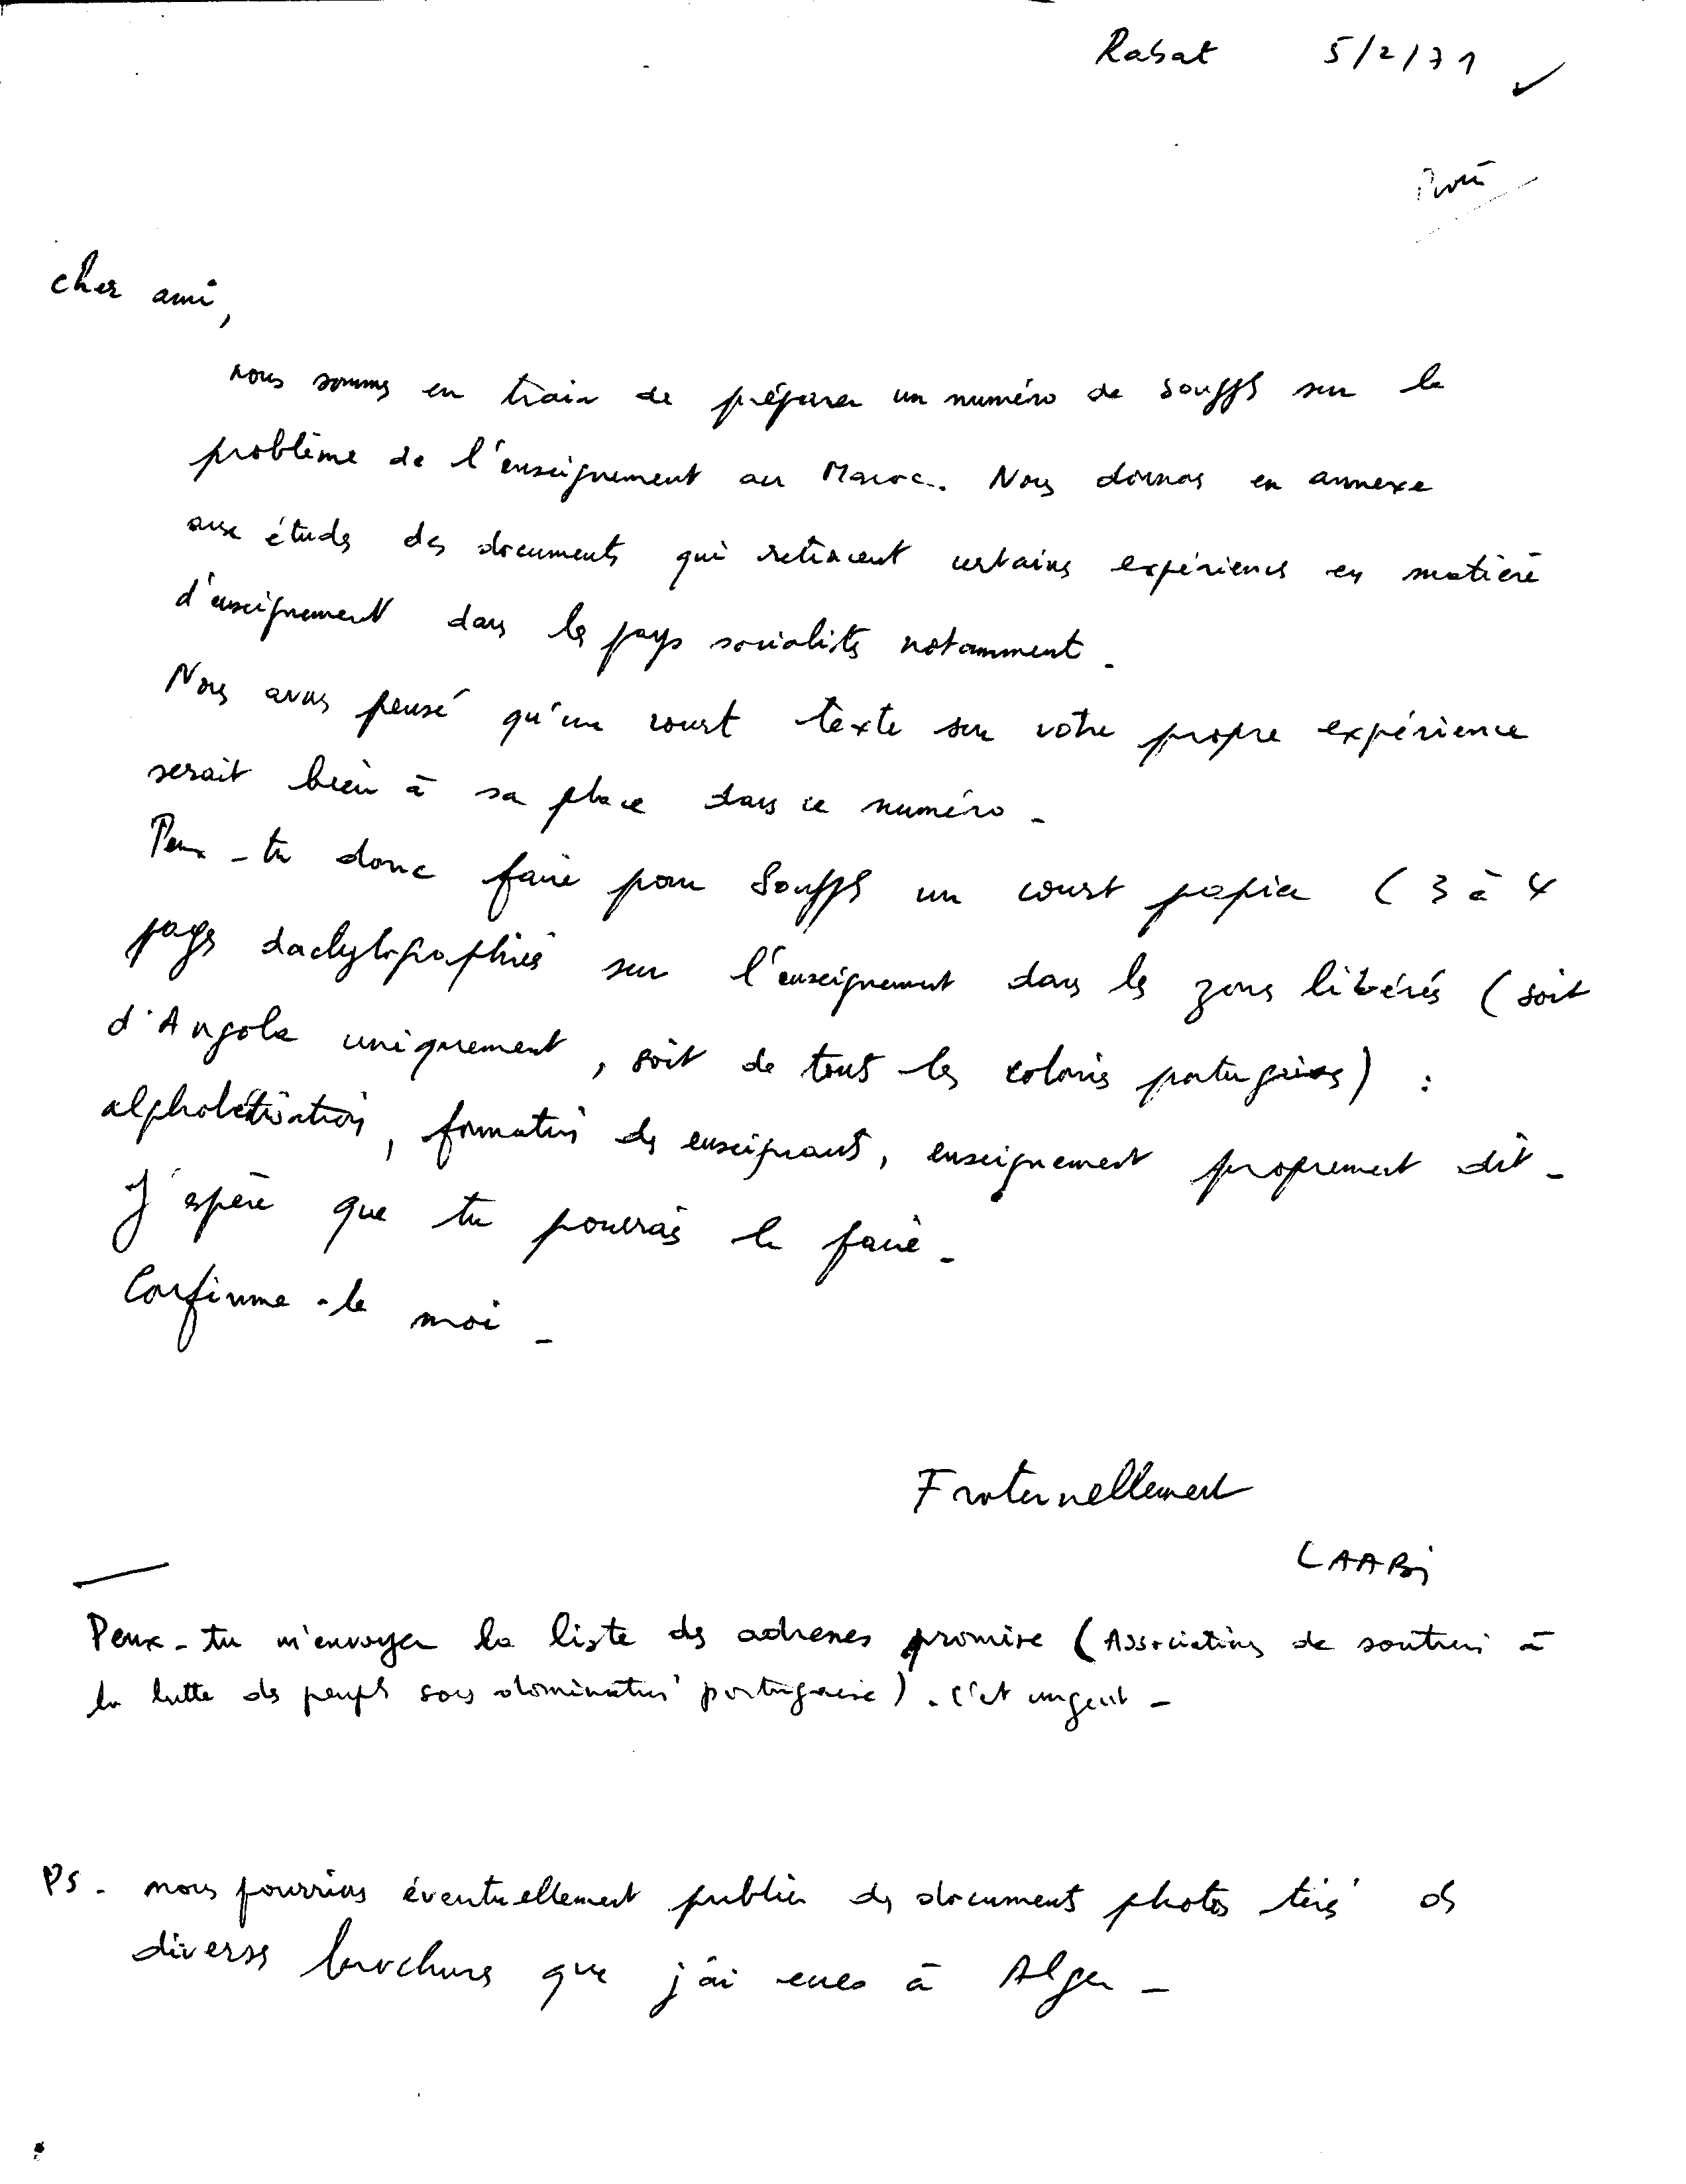 Rabat 5/2/71
cher ami,
nous sommes en train de préparer un numéro de Souffles sur le
problème de l'enseignement au Maroc. Nous donnons en annexe
aux études des documents qui retracent certaines expériences en matière
d'enseignement dans les pays socialistes notamment.
Nous avons pensé qu'un court texte sur votre propre expérience
serait bien à sa place dans ce numéro -
Peux-tu donc faire pour Souffles un court papier (3 à 4
pages dactylographiées sur l'enseignement dans les zones libérées (soit
d'Angola uniquement, soit de toutes les colonies portugaises) :
alphabétisation, formation des enseignants, enseignement proprement dit -
J'espère que tu pourras le faire -
Confirme-le moi -
Fraternellement
LAABi
Peux-tu m'envoyer la liste des adresses promise (Associations de soutien à
la lutte des peuples sous domination portugaise). C'est urgent -
PS - nous pourrions éventuellement publier des documents photos tirés des
diverses brochures que j'ai eues à Alger -